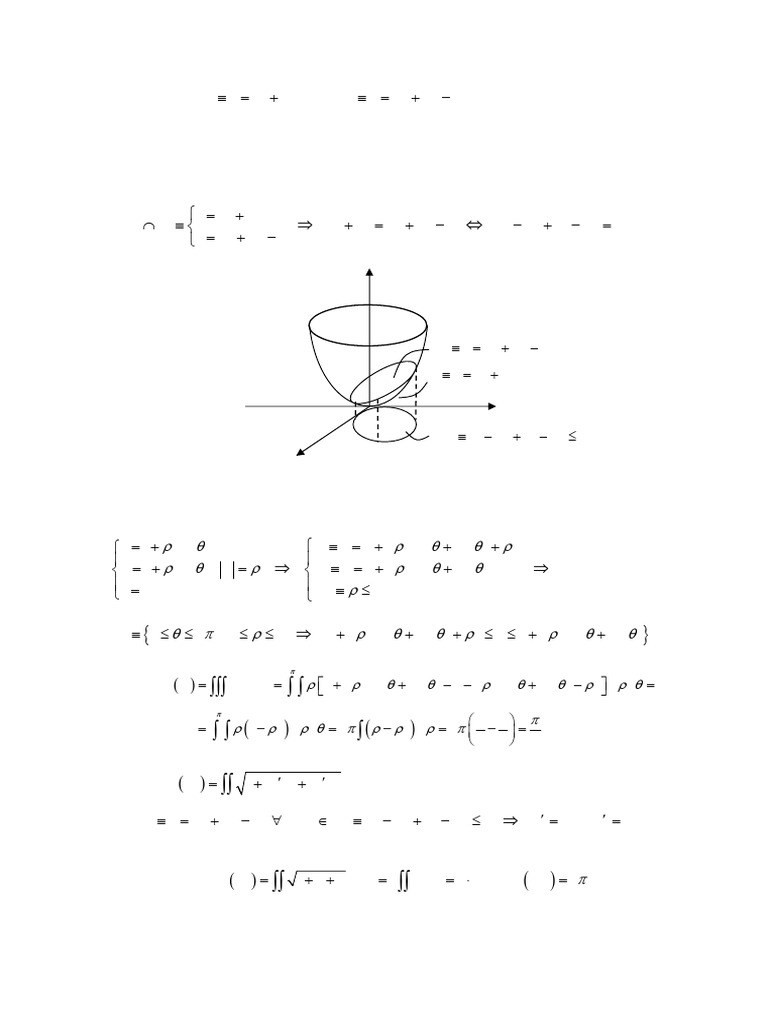 ≡ = + ≡ = + −
∩ ≡ { = + = + − ⇒ + = + − ⇔ − + − =
≡ = + −
≡ = +
≡ − + − ≤
{ = + ρ θ = + ρ θ = | | = ρ ⇒ { ≡ = + ρ θ + θ + ρ ≡ = + ρ θ + θ ≡ ρ ≤ ⇒
≡ { ≤ θ ≤ π ≤ ρ ≤ ⇒ + ρ θ + θ + ρ ≤ ≤ + ρ θ + θ }
( ) = ∭ = ∫ ∫ ρ [ + ρ θ + θ − − ρ θ + θ − ρ ] ρ θ =
π
= ∫ ∫ ρ ( − ρ ) ρ θ = π ∫ ( ρ − ρ ) ρ = π ( − ) = π
π
( ) = ∬ √ + ′ + ′
≡ = + − ∀ ∈ ≡ − + − ≤ ⇒ ′ = ′ =
( ) = ∬ √ + + = ∬ = · ( ) = π